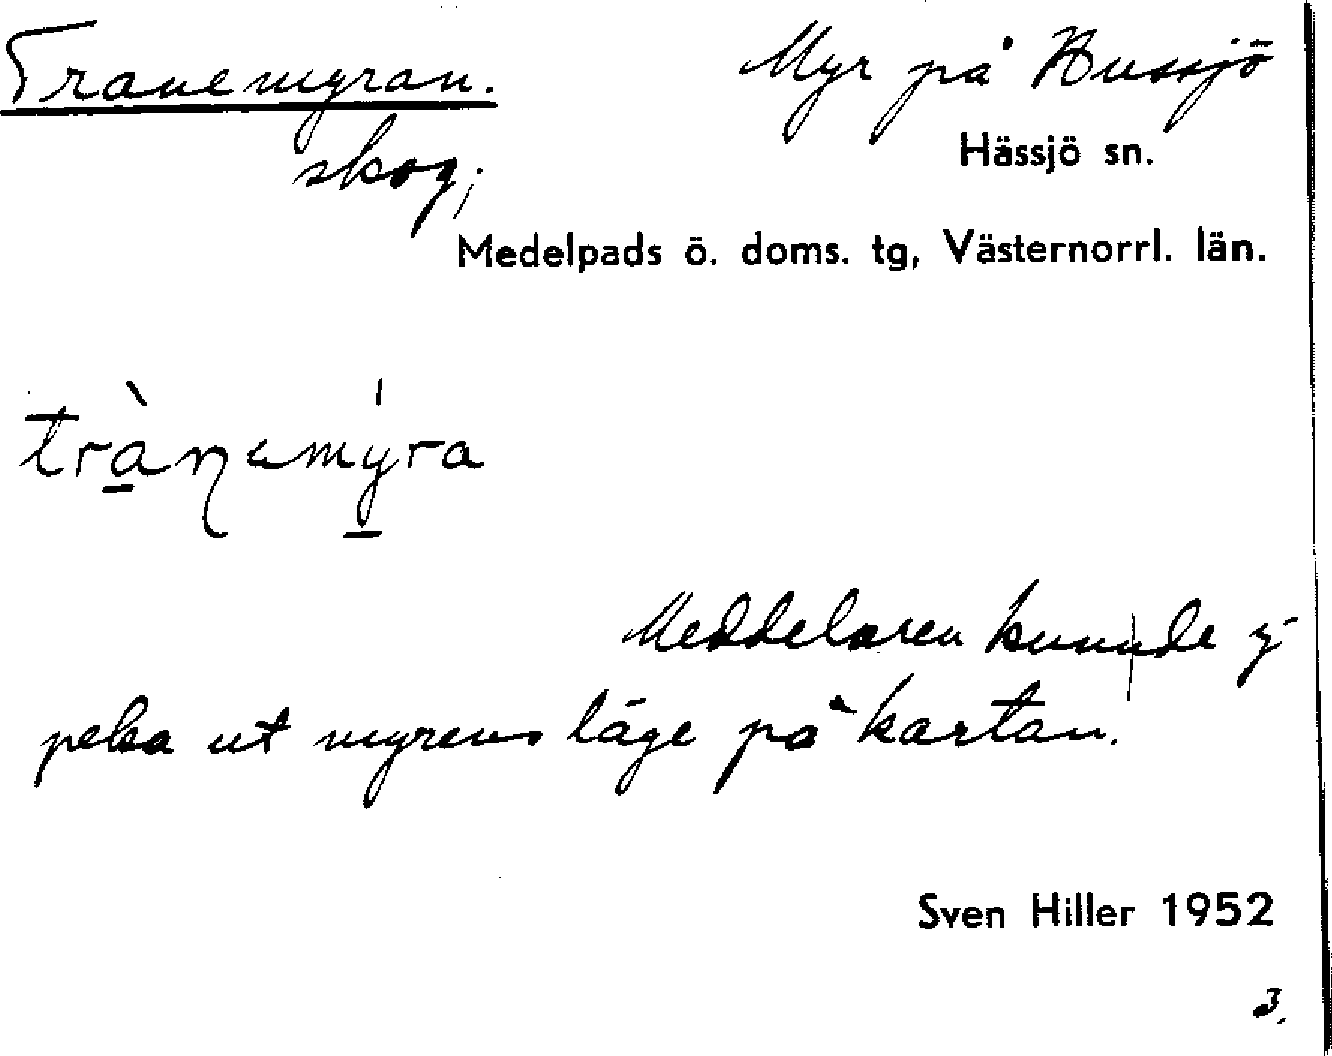 Tranemyran. Myr på Hussjö
Hässjö sn.
skog;
Medelpads ö. doms. tg, Västernorrl. län.
Meddelaren kunnde ej
peka ut myrens läge på kartan.
Sven Hiller 1952
3.